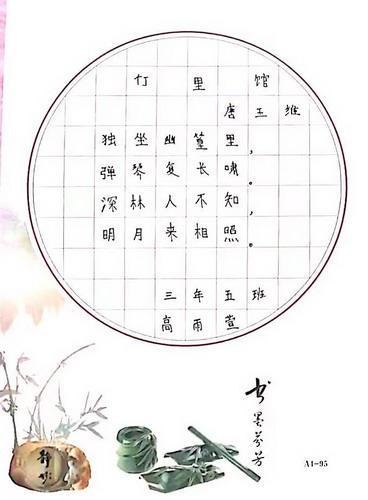 竹里馆
唐王维
独坐幽篁里，
弹琴复长啸。
深林人不知，
明月来相照。
三年五班
高雨萱
书墨芬芳
A4-95